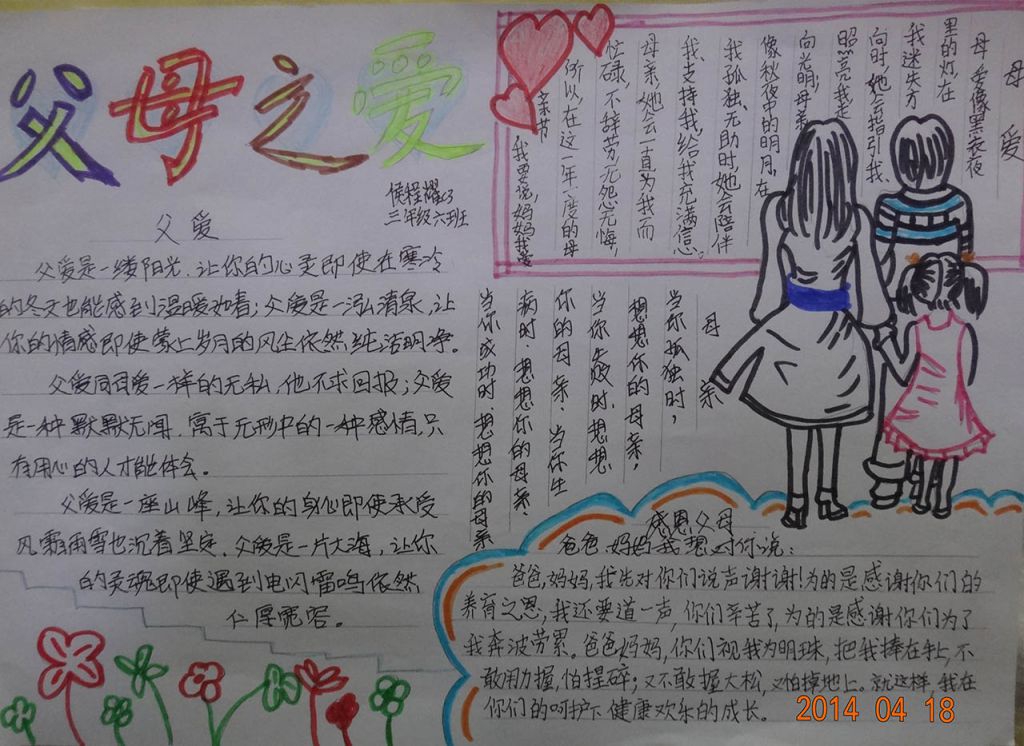 父母之爱
侯程耀43
三年级六班
父爱
父爱是一缕阳光,让你的心灵即使在寒冷
的冬天也能感到温暖如春;父爱是一泓清泉,让
你的情感即使蒙上岁月的风尘依然纯洁明净。
父爱同母爱一样的无私,他不求回报;父爱
是一种默默无闻,寓于无形中的一种感情,只
有用心的人才能体会。
父爱是一座山峰,让你的身心即使承受
风霜雨雪也沉着坚定,父爱是一片大海,让你
的灵魂即使遇到电闪雷鸣依然
仁厚宽容。
母爱
母爱像黑夜夜
里的灯,在
我迷失方
向时,她会指引我,
照亮我走
向光明,母亲
像秋夜中的明月,在
我孤独、无助时,她会陪伴
我,支持我,给我充满信心。
母亲,她会一直为我而
忙碌,不辞劳,无怨无悔,
所以在这一年一度的母
亲节,
我要说,妈妈我爱
母亲
当你孤独时,
想想你的母亲,
当你失败时,想想
你的母亲,当你生
病时,想想你的母亲,
当你成功时,想想你的母亲
感恩父母
爸爸,妈妈我想对你说:
爸爸,妈妈,我先对你们说声谢谢!为的是感谢你们的
养育之恩,我还要道一声,你们辛苦了,为的是感谢你们为了
我奔波劳累。爸爸妈妈,你们视我为明珠,把我捧在手上,不
敢用力握,怕捏碎;又不敢握太松,又怕掉地上。就这样,我在
你们的呵护下健康欢乐的成长。
2014 04 18